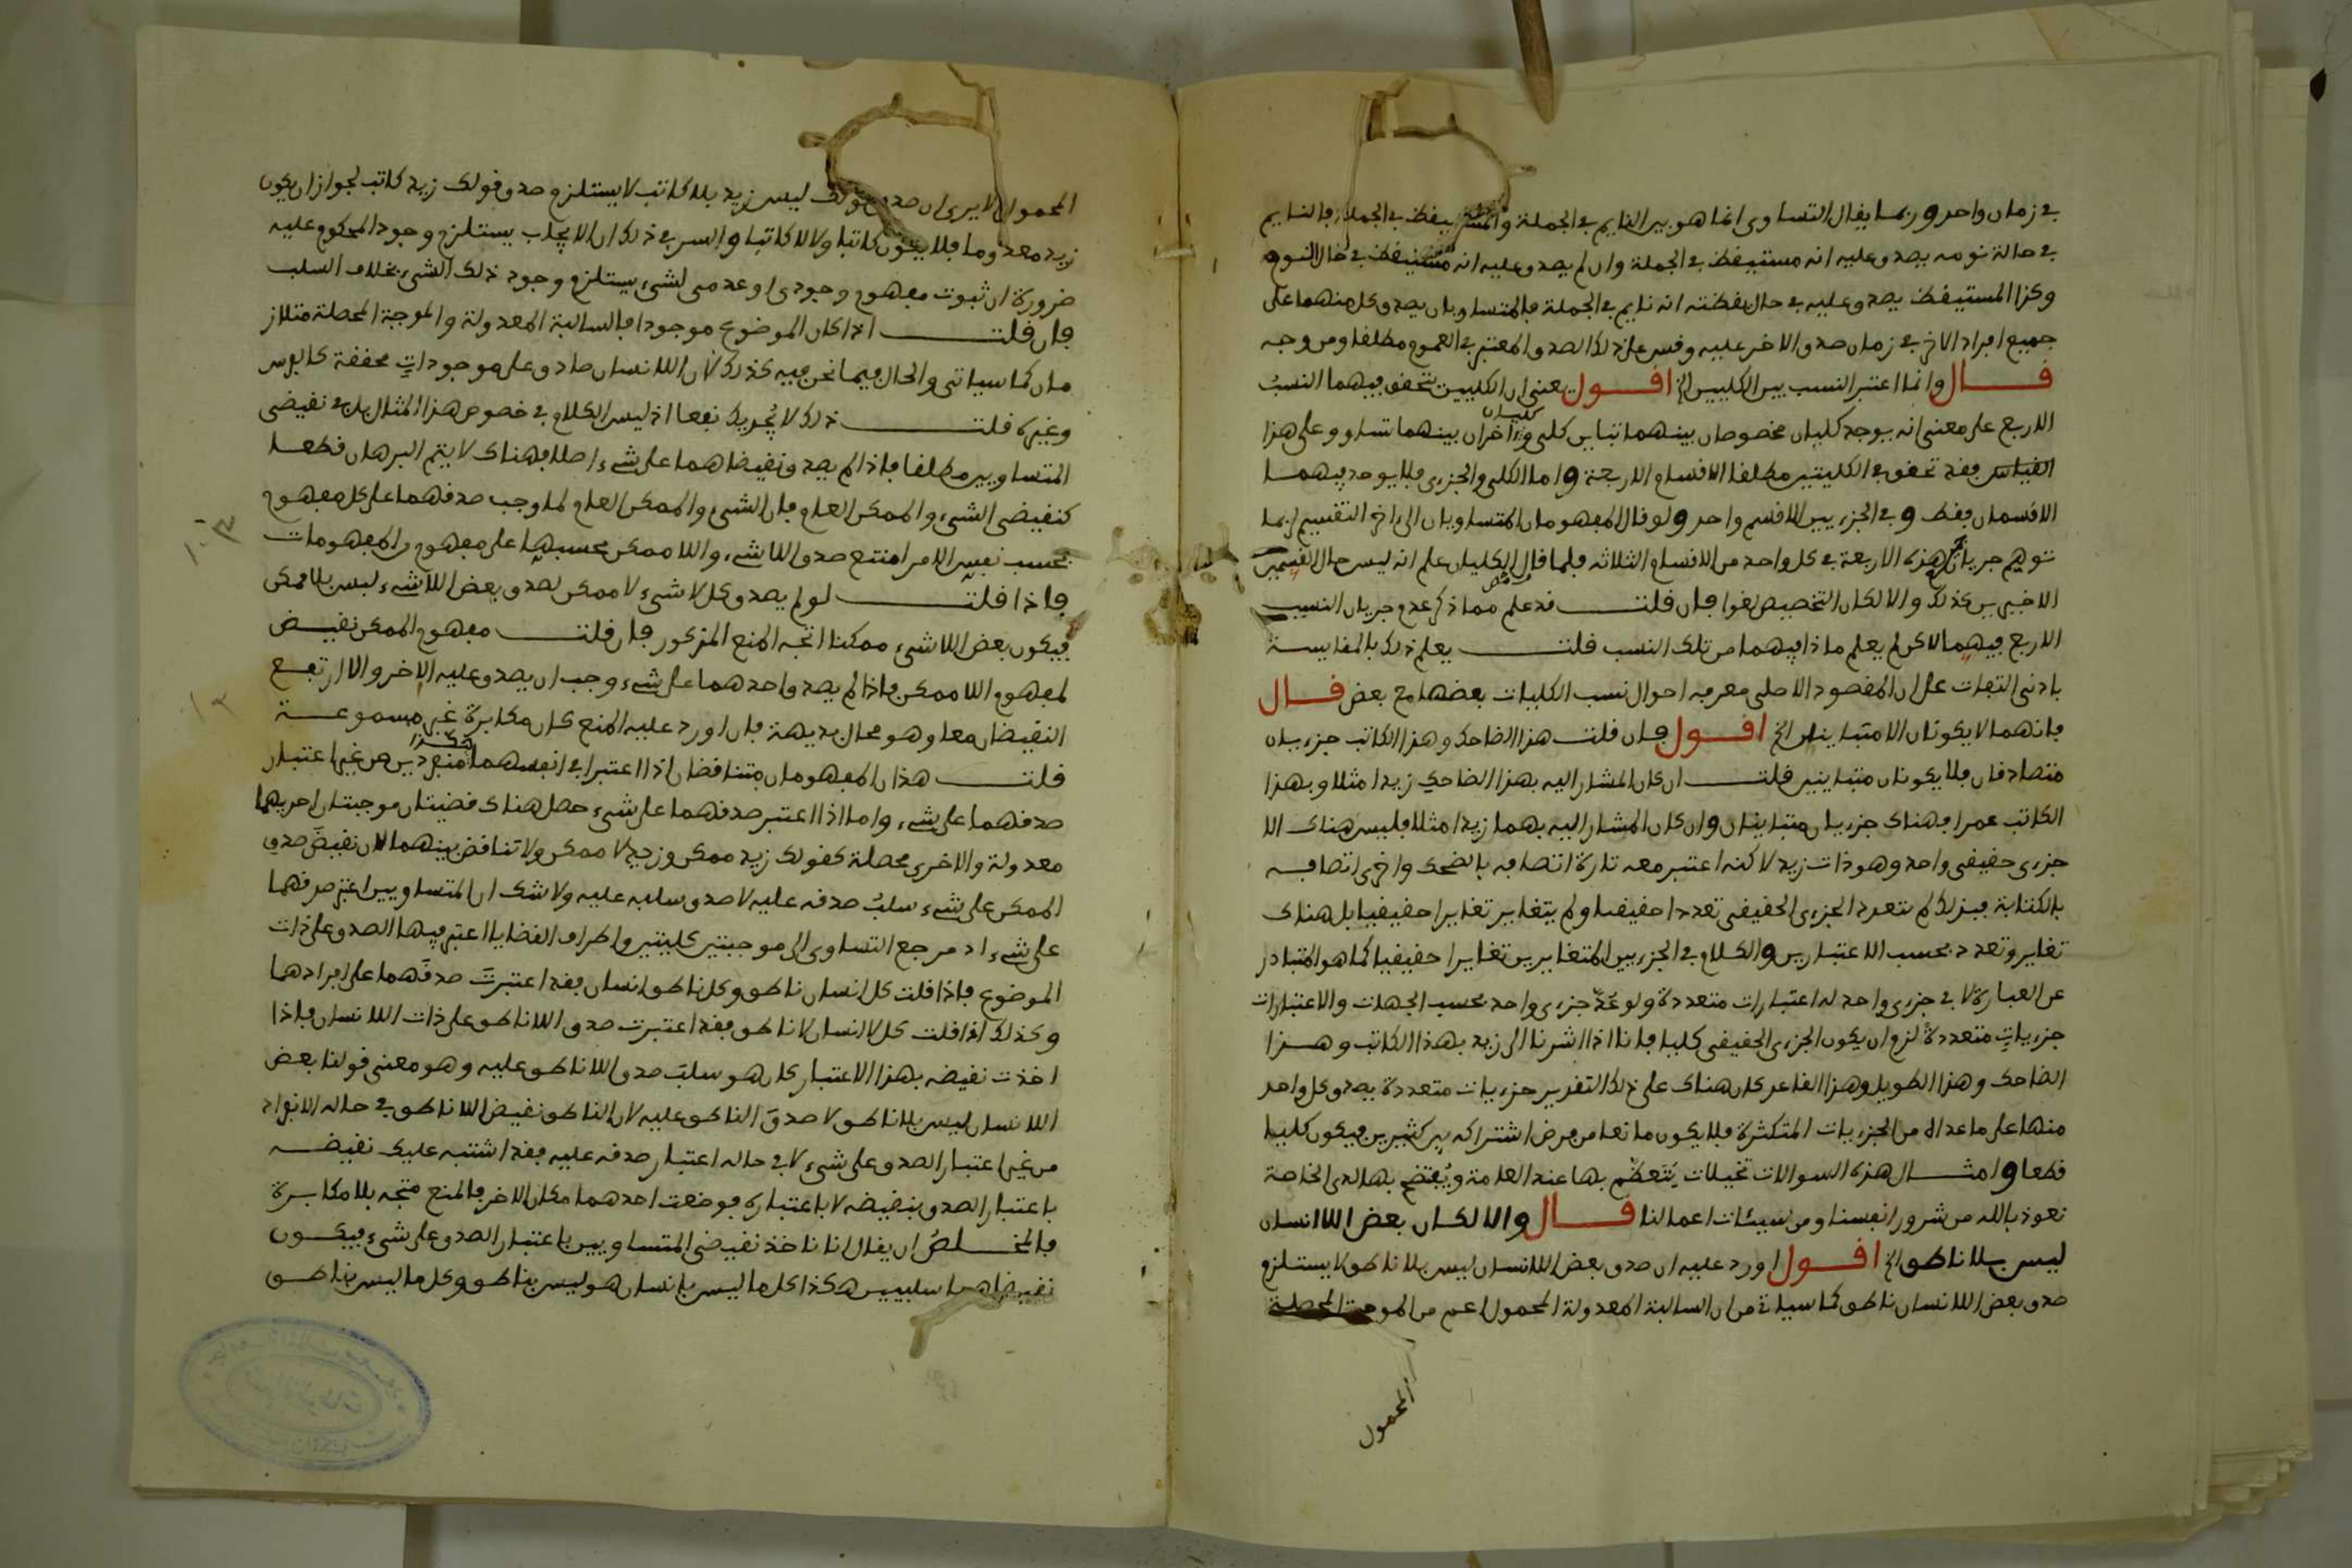 في زمان واحد وربما يقال التساوي انما هو بين النايم في الجملة والمستيقظ في الجملة فالنايم
في حالة نومه يصدق عليه انه مستيقظ في الجملة وان لم يصدق عليه انه مستيقظ في حال النوم
وكذا المستيقظ يصدق عليه في حال يقظته انه نايم في الجملة فالمتساويان يصدق كل منهما على
جميع افراد الاخر في زمان صدق الاخر عليه وقس على ذلك الصدق المعتبر في العموم مطلقا ومن وجه
قال وانما اعتبر النسب بين الكليين الخ اقول يعني ان الكليين تتحقق فيهما النسب
الاربع على معنى انه يوجد كليان مخصوصان بينهما تباين كلي وكليان اخران بينهما تساوو وعلى هذا
القياس فقد تحقق في الكليتين مطلقا الاقسام الاربعة واما الكلي والجزءي فلا يوجد فيهما
الاقسمان فقط وفي الجزءيين الا قسم واحد ولو قال المفهومان المتساويان الى اخر التقسيم لربما
توهم جريان هذه الاربعة في كل واحد من الاقسام الثلاثه فلما قال الكليان علم انه ليس حال القسمين
الاخيرين كذلك والا لكان التخصيص لغوا فان قلت قد علم مما ذكر عدم جريان النسب
الاربع فيهما لاكن لم يعلم ماذا فيهما من تلك النسب قلت يعلم ذلك بالمقايسة
بادنى التفات على ان المقصود الاصلي معرفه احوال نسب الكليات بعضها مع بعض قال
فانهما لا يكونان الا متباينان الخ اقول فان قلت هذا الضاحك وهذا الكاتب جزءيان
متصادقان فلا يكونان متباينين قلت ان كان المشار اليه بهذا الضاحك زيدا مثلا وبهذا
الكاتب عمرا فهناك جزءيان متباينان وان كان المشار اليه بهما زيدا مثلا فليس هناك الا
جزءي حقيقي واحد وهو ذات زيد لاكنه اعتبر معه تارة اتصافه بالضحك واخرى اتصافه
بالكتابة فبذلك لم يتعدد الجزءي الحقيقي تعددا حقيقيا ولم يتغاير تغايرا حقيقيا بل هناك
تغاير وتعدد بحسب الاعتبارين والكلام في الجزءيين المتغايرين تغايرا حقيقيا كما هو المتبادر
عن العبارة لا في جزءي واحد له اعتبارات متعددة ولو عد جزءي واحد بحسب الجهات والاعتبارات
جزءيات متعددة لزم ان يكون الجزءي الحقيقي كليا فانا اذا اشرنا الى زيد بهذا الكاتب وهذا
الضاحك وهذا الطويل وهذا القاعد كان هناك على ذلك التقرير جزءيات متعددة يصدق كل واحد
منها على ما عداه من الجزءيات المتكثرة فلا يكون مانعا من فرض اشتراكه بين كثيرين فيكون كليا
قطعا وامثال هذه السوالات تخيلات يتعظم بها عند العامة ويفتضح بها لدى الخاصة
نعوذ بالله من شرور انفسنا ومن سيئات اعمالنا قال والا لكان بعض اللا انسان
ليس بلا ناطق الخ اقول اورد عليه ان صدق بعض اللا انسان ليس بلا ناطق لا يستلزم
صدق بعض اللا انسان ناطق كما سياتي من ان السالبة المعدولة المحمول اعم من الموجبة المحصلة
المحمول
المحمول الا يرى ان صدق قولك ليس زيد بلا كاتب لا يستلزم صدق قولك زيد كاتب لجواز ان يكون
زيد معدوما فلا يكون كاتبا ولا لا كاتبا والسر في ذلك ان الايجاب يستلزم وجود المحكوم عليه
ضرورة ان ثبوت مفهوم وجودي او عدمي لشيء يستلزم وجود ذلك الشيء بخلاف السلب
فان قلت اذا كان الموضوع موجودا فالسالبة المعدولة والموجبة المحصلة متلاز
مان كما سياتي والحال فيما نحن فيه كذلك لان اللا انسان صادق على موجودات محققة كالفرس
وغيره قلت ذلك لا يجديك نفعا اذ ليس الكلام في خصوص هذا المثال بل في نقيضي
المتساويين مطلقا فاذا لم يصدق نقيضاهما على شيء اصلا فهناك لا يتم البرهان قطعا
كنقيضي الشيء والممكن العام فان الشيء والممكن العام لما وجب صدقهما على كل مفهوم
بحسب نفس الامر امتنع صدق اللا شيء واللا ممكن بحسبها على مفهوم من المفهومات
فاذا قلت لو لم يصدق كل لا شيء لا ممكن لصدق بعض اللا شيء ليس بلا ممكن
فيكون بعض اللا شيء ممكنا اتجه المنع المذكور فان قلت مفهوم الممكن نقيض
لمفهوم اللا ممكن فاذا لم يصدق احدهما على شيء وجب ان يصدق عليه الاخر والا ارتفع
النقيضان معا وهو محال بديهة فان اورد عليه المنع كان مكابرة غير مسموعة
قلت هذان المفهومان متناقضان اذا اعتبرا في انفسهما هكذا منفردين من غير اعتبار
صدقهما على شيء واما اذا اعتبر صدقهما على شيء حصل هناك قضيتان موجبتان احديهما
معدولة والاخرى محصلة كقولك زيد ممكن وزيد لا ممكن ولا تناقض بينهما لان نقيض صدق
الممكن على شيء سلب صدقه عليه لا صدق سلبه عليه ولا شك ان المتساويين اعتبر صدقهما
على شيء اذ مرجع التساوي الى موجبتين كليتين واطراف القضايا اعتبر فيها الصدق على ذات
الموضوع فاذا قلت كل انسان ناطق وكل ناطق انسان فقد اعتبرت صدقهما على افرادهما
وكذلك اذا قلت كل لا انسان لا ناطق فقد اعتبرت صدق اللا ناطق على ذات اللا انسان فاذا
اخذت نقيضه بهذا الاعتبار كان هو سلب صدق اللا ناطق عليه وهو معنى قولنا بعض
اللا انسان ليس بلا ناطق لا صدق الناطق عليه لان الناطق نقيض اللا ناطق في حاله الانفراد
من غير اعتبار الصدق على شيء لا في حاله اعتبار صدقه عليه فقد اشتبه عليك نقيضه
باعتبار الصدق بنقيضه لا باعتباره فوضعت احدهما مكان الاخر فالمنع متجه بلا مكابرة
فالمخلص ان يقال انا ناخذ نقيضي المتساويين باعتبار الصدق على شيء فيكون
نقيضاهما سلبيين هكذا كل ما ليس بانسان هو ليس بناطق وكل ما ليس بناطق